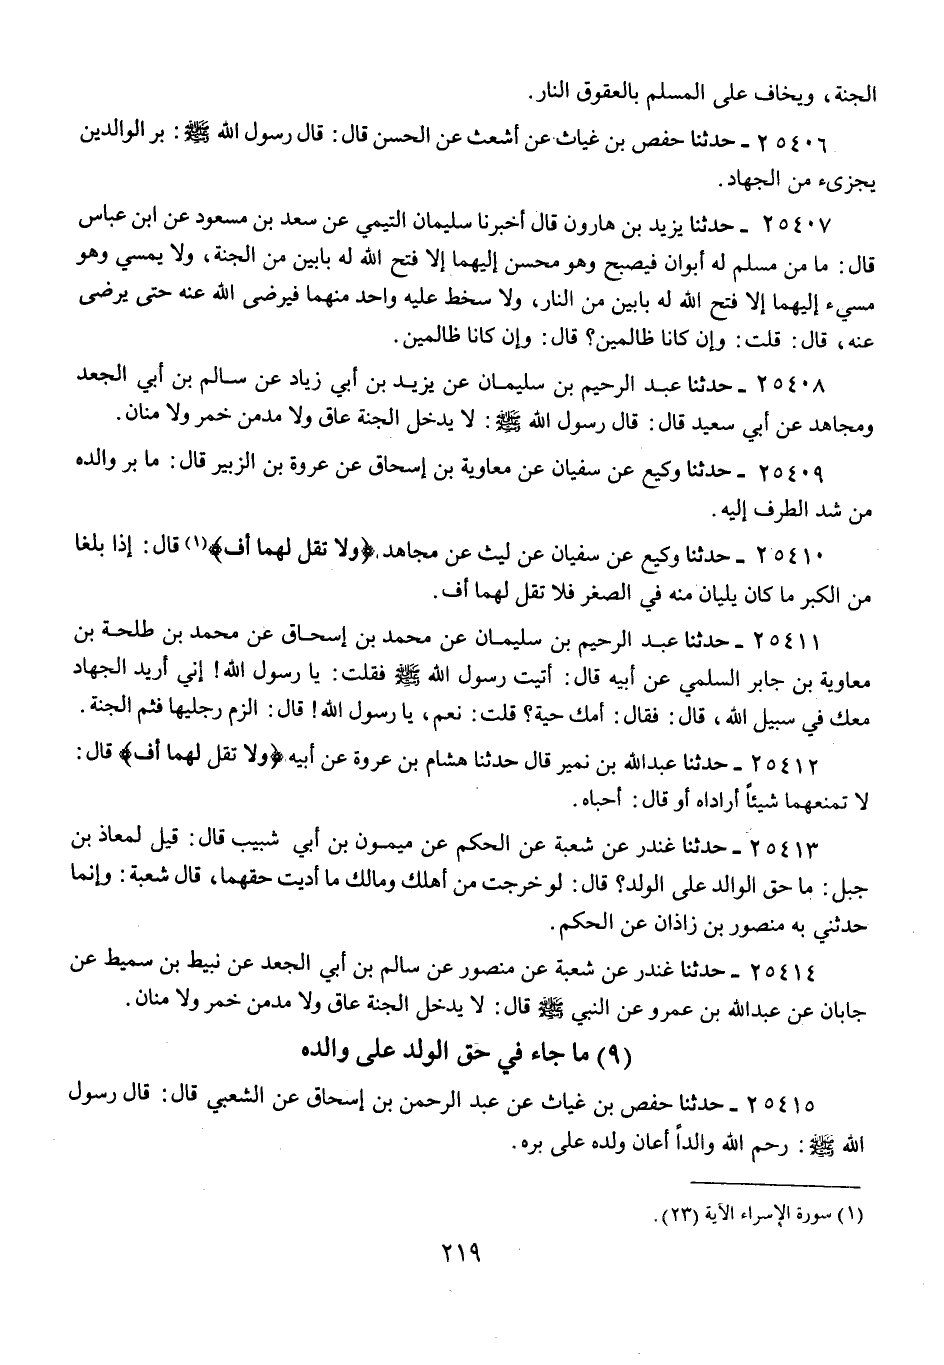 الجنة، ويخاف على المسلم بالعقوق النار.
٢٥٤٠٦ ـ حدثنا حفص بن غياث عن أشعث عن الحسن قال: قال رسول الله ﷺ: بر الوالدين
يجزىء من الجهاد.
٢٥٤٠٧ ـ حدثنا يزيد بن هارون قال أخبرنا سليمان التيمي عن سعد بن مسعود عن ابن عباس
قال: ما من مسلم له أبوان فيصبح وهو محسن إليهما إلا فتح الله له بابين من الجنة، ولا يمسي وهو
مسيء إليهما إلا فتح الله له بابين من النار، ولا سخط عليه واحد منهما فيرضى الله عنه حتى يرضى
عنه، قال: قلت: وإن كانا ظالمين؟ قال: وإن كانا ظالمين.
٢٥٤٠٨ ـ حدثنا عبد الرحيم بن سليمان عن يزيد بن أبي زياد عن سالم بن أبي الجعد
ومجاهد عن أبي سعيد قال: قال رسول الله ﷺ: لا يدخل الجنة عاق ولا مدمن خمر ولا منان.
٢٥٤٠٩ ـ حدثنا وكيع عن سفيان عن معاوية بن إسحاق عن عروة بن الزبير قال: ما بر والده
من شد الطرف إليه.
٢٥٤١٠ ـ حدثنا وكيع عن سفيان عن ليث عن مجاهد ﴿ولا تقل لهما أف﴾(١) قال: إذا بلغا
من الكبر ما كان يليان منه في الصغر فلا تقل لهما أف.
٢٥٤١١ ـ حدثنا عبد الرحيم بن سليمان عن محمد بن إسحاق عن محمد بن طلحة بن
معاوية بن جابر السلمي عن أبيه قال: أتيت رسول الله ﷺ فقلت: يا رسول الله! إني أريد الجهاد
معك في سبيل الله، قال: فقال: أمك حية؟ قلت: نعم، يا رسول الله! قال: الزم رجليها فثم الجنة.
٢٥٤١٢ ـ حدثنا عبدالله بن نمير قال حدثنا هشام بن عروة عن أبيه ﴿ولا تقل لهما أف﴾ قال:
لا تمنعهما شيئاً أراداه أو قال: أحباه.
٢٥٤١٣ ـ حدثنا غندر عن شعبة عن الحكم عن ميمون بن أبي شبيب قال: قيل لمعاذ بن
جبل: ما حق الوالد على الولد؟ قال: لو خرجت من أهلك ومالك ما أديت حقهما، قال شعبة: وإنما
حدثني به منصور بن زاذان عن الحكم.
٢٥٤١٤ ـ حدثنا غندر عن شعبة عن منصور عن سالم بن أبي الجعد عن نبيط بن سميط عن
جابان عن عبدالله بن عمرو عن النبي ﷺ قال: لا يدخل الجنة عاق ولا مدمن خمر ولا منان.
(٩) ما جاء في حق الولد على والده
٢٥٤١٥ ـ حدثنا حفص بن غياث عن عبد الرحمن بن إسحاق عن الشعبي قال: قال رسول
الله ﷺ: رحم الله والداً أعان ولده على بره.
(١) سورة الإسراء الآية (٢٣).
٢١٩